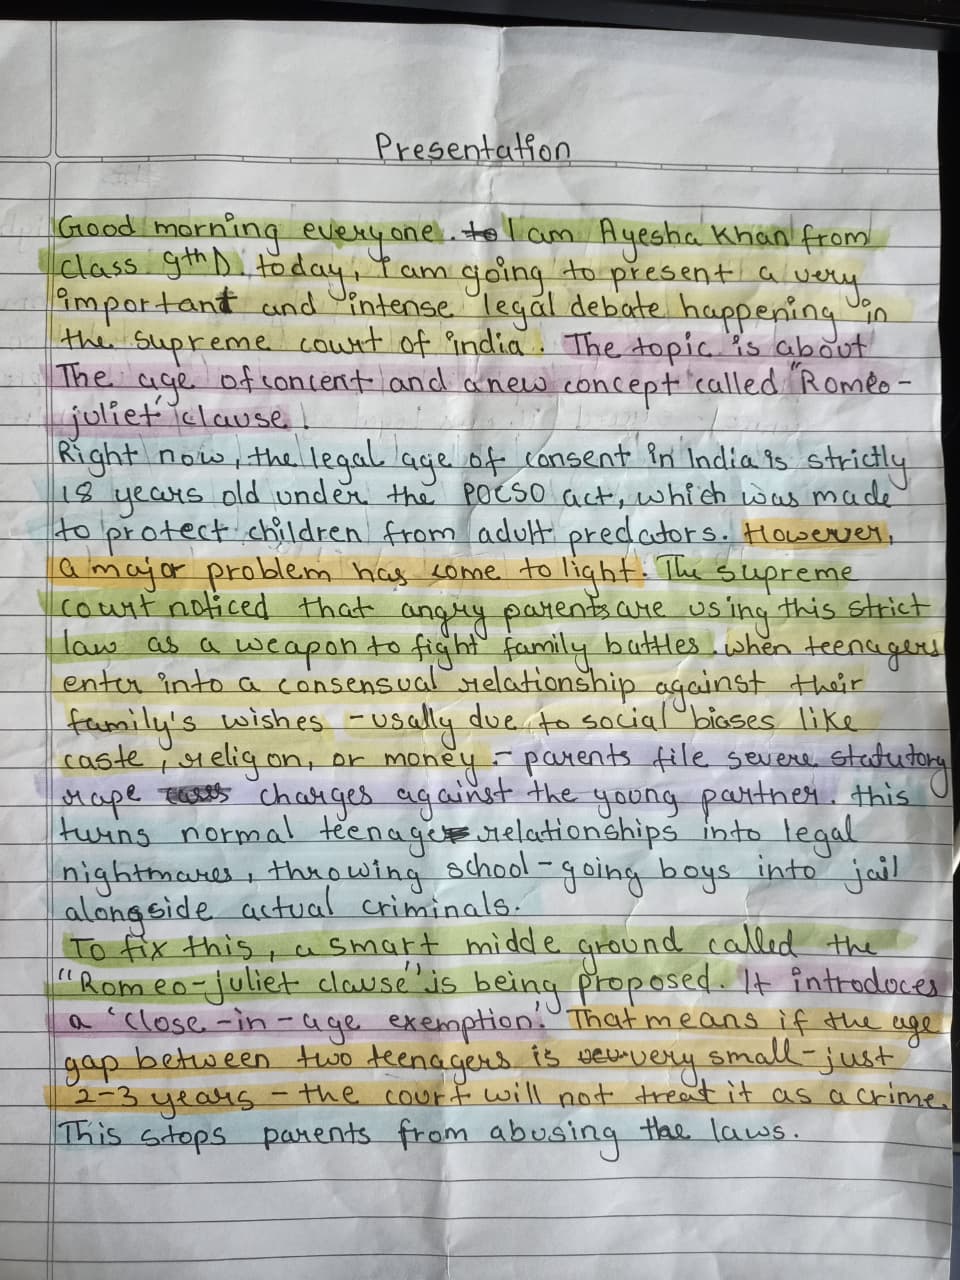 Presentation
Good morning everyone. to I am Ayesha Khan from
class 9th D. today, I am going to present a very
important and intense legal debate happening in
the supreme court of india. The topic is about
The age of concent and a new concept called "Romeo-
juliet" clause!
Right now, the legal age of consent in India is strictly
18 years old under the POCSO act, which was made
to protect children from adult predators. However,
a major problem has come to light. The supreme
court noticed that angry parents are using this strict
law as a weapon to fight family battles. when teenagers
enter into a consensual relationship against their
family's wishes - usally due to social biases like
caste, religon, or money - parents file severe statutory
rape charges against the young partner. this
turns normal teenage relationships into legal
nightmares, throwing school-going boys into jail
alongside actual criminals.
To fix this, a smart midde ground called the
"Romeo-juliet clause" is being proposed. It introduces
a 'close-in-age exemption.' That means if the age
gap between two teenagers is very small - just
2-3 years - the court will not treat it as a crime.
This stops parents from abusing the laws.